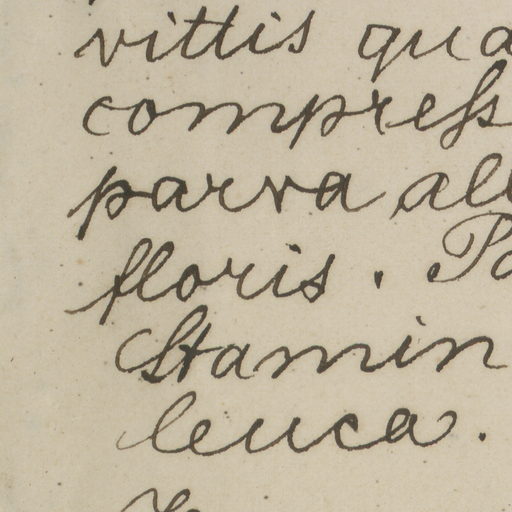 vittis qua
compress
parva al
floris. P
Stamin
leuca.